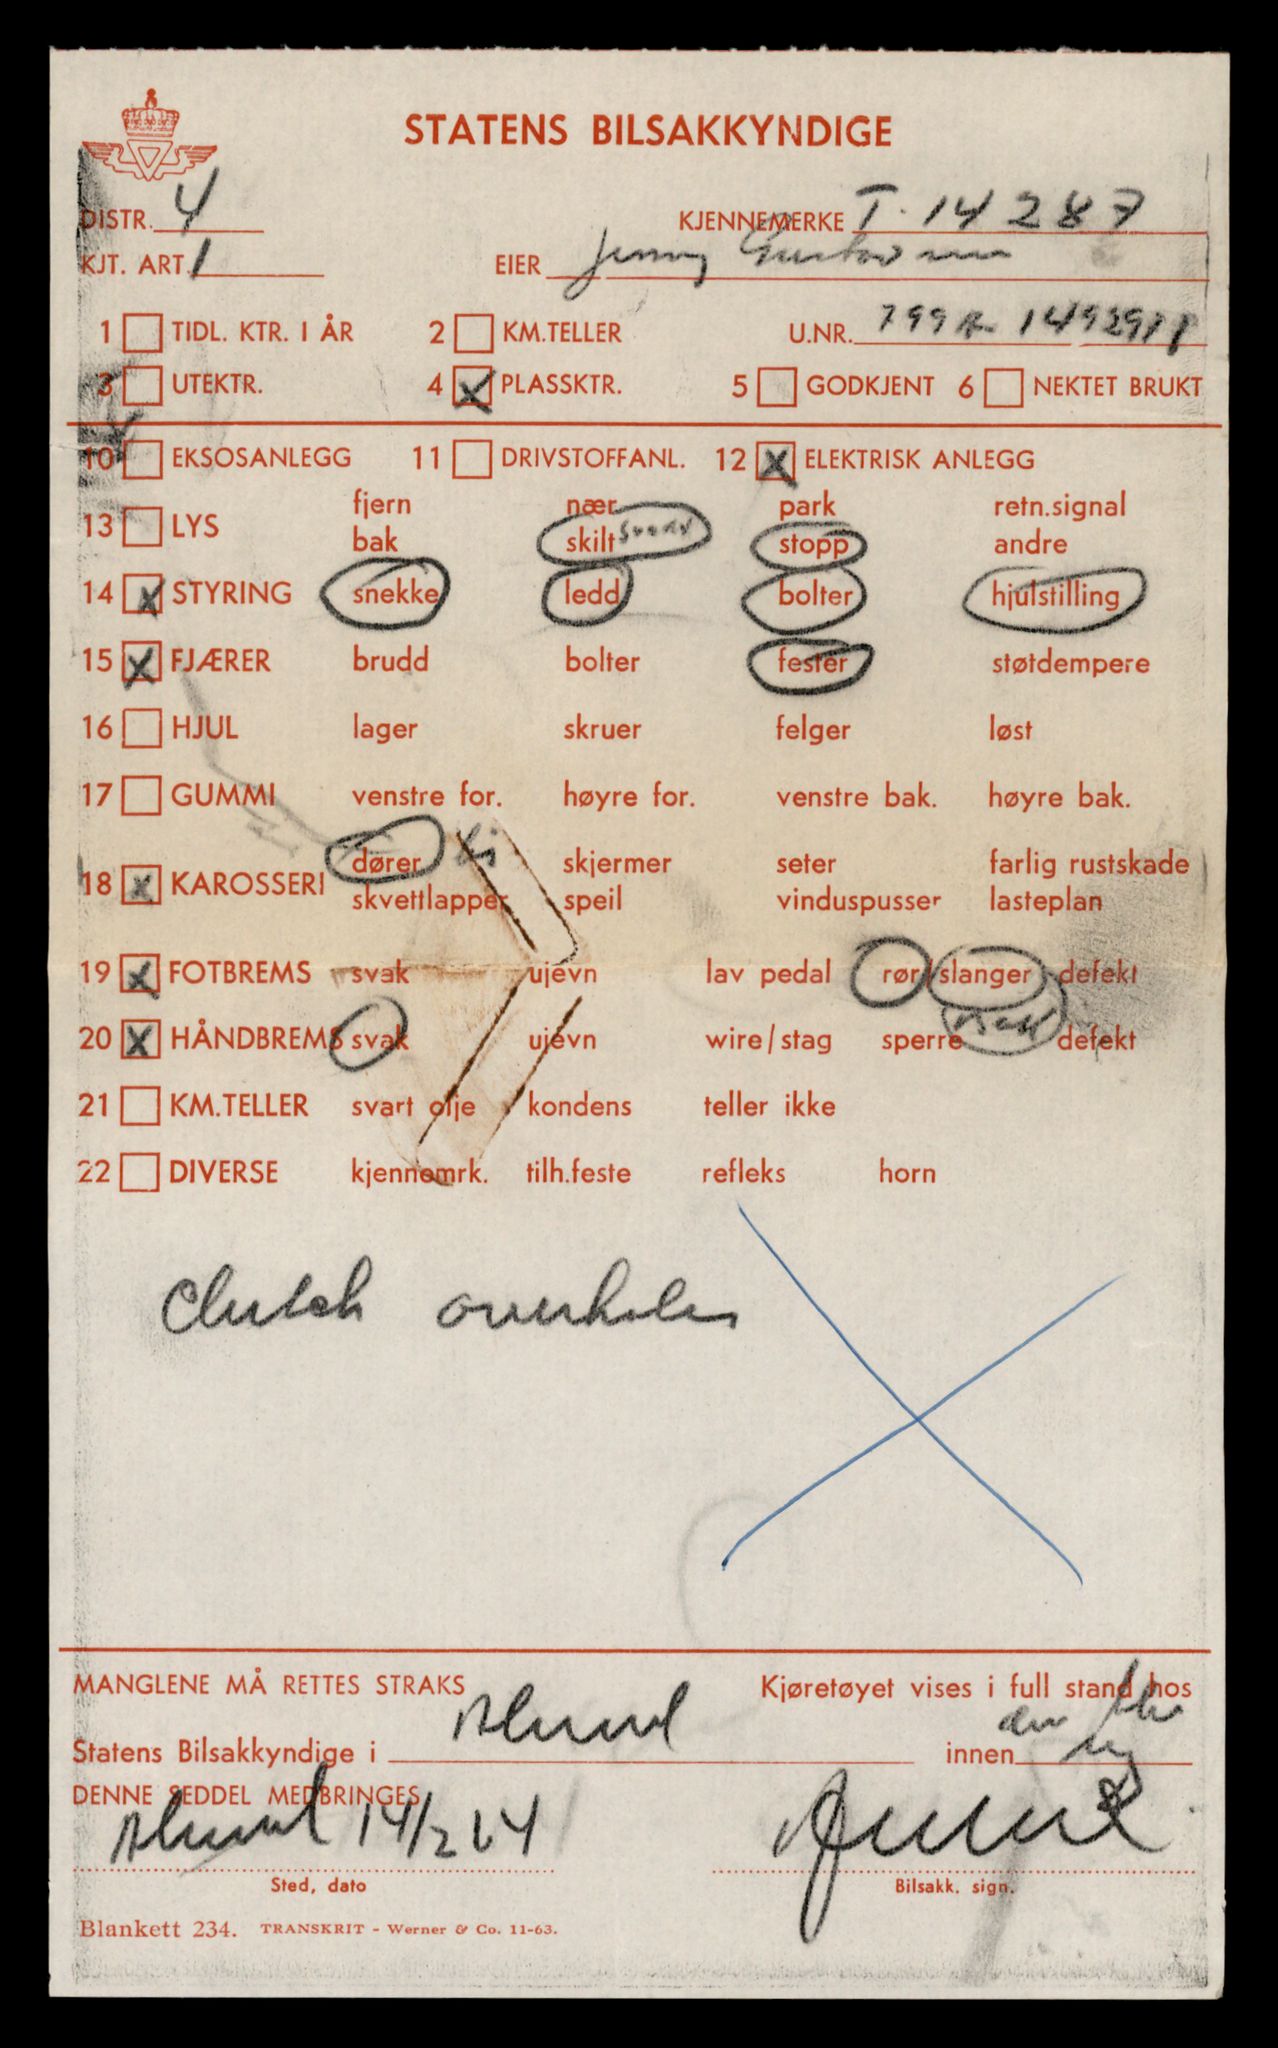 STATENS BILSAKKYNDIGE
DISTR. 4 KJENNEMERKE T-14287
KJT. ART. 1 EIER Jenny
1 TIDL. KTR. I ÅR 2 KM.TELLER U.NR.
3 UTEKTR. 4 X PLASSKTR. 5 GODKJENT 6 NEKTET BRUKT
10 EKSOSANLEGG 11 DRIVSTOFFANL. 12 X ELEKTRISK ANLEGG
fjern nær park retn.signal
13 LYS
bak skilt stopp andre
14 X STYRING snekke ledd bolter hjulstilling
15 X FJÆRER brudd bolter fester støtdempere
16 HJUL lager skruer felger løst
17 GUMMI venstre for. høyre for. venstre bak. høyre bak.
dører skjermer seter farlig rustskade
18 X KAROSSERI
skvettlapper speil vinduspusser lasteplan
19 X FOTBREMS svak ujevn lav pedal rør/slanger defekt
20 X HÅNDBREMS svak ujevn wire/stag sperre defekt
21 KM.TELLER svart olje kondens teller ikke
22 DIVERSE kjennemrk. tilh.feste refleks horn
Clutch overhales
MANGLENE MÅ RETTES STRAKS Kjøretøyet vises i full stand hos
Statens Bilsakkyndige i Ålesund innen
DENNE SEDDEL MEDBRINGES
Ålesund 14/2 64
Sted, dato Bilsakk. sign.
Blankett 234. TRANSKRIT - Werner & Co. 11-63.